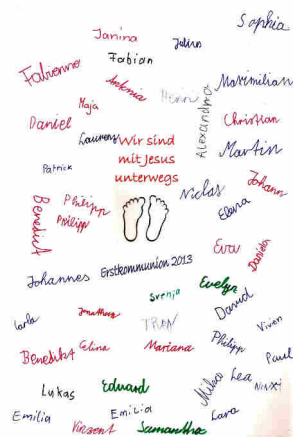 Sophia
Janina
Julius
Fabian
Fabienne
Antonia
Henri
Maximilian
Maja
Alexandra
Daniel
Christian
Laurens
Wir sind
mit Jesus
unterwegs
Martin
Patrick
Johann
Niclas
Benedict
Philipp
Philipp
Elena
Eva
Daniela
Johannes
Erstkommunion 2013
Svenja
Evelyn
David
Carla
Jonathan
TRAN
Vivien
Benedikt
Elina
Mariana
Philipp
Paul
Lukas
Eduard
Mirko
Lea
Emilia
Emilia
Lara
Vinzent
Samantha